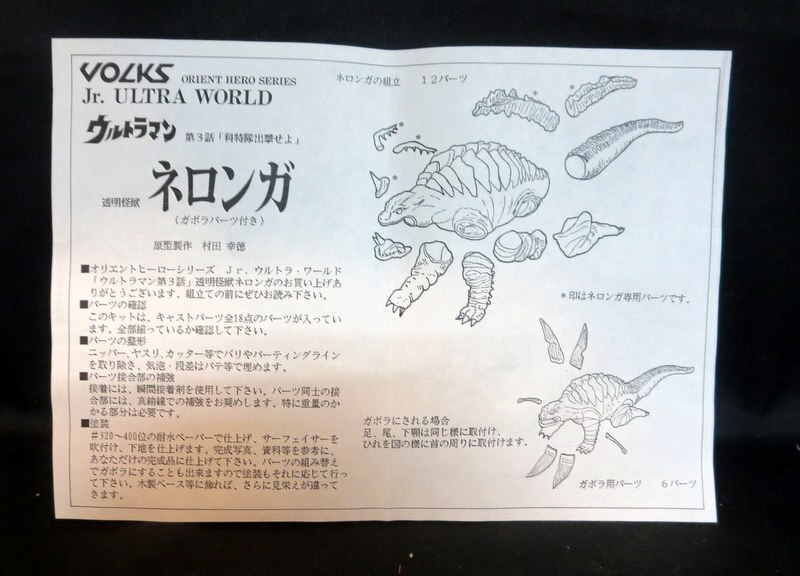 VOLKS ORIENT HERO SERIES
Jr. ULTRA WORLD
ウルトラマン 第3話「科特隊出撃せよ」
透明怪獣 ネロンガ
(ガボラパーツ付き)
原型製作 村田 幸徳
■オリエントヒーローシリーズ Jr.ウルトラ・ワールド
「ウルトラマン第3話」透明怪獣ネロンガのお買い上げあ
りがとうございます。組立ての前にぜひお読み下さい。
■パーツの確認
このキットは、キャストパーツ全18点のパーツが入ってい
ます。全部揃っているか確認して下さい。
■パーツの整形
ニッパー、ヤスリ、カッター等でバリやパーティングライン
を取り除き、気泡・段差はパテ等で埋めます。
■パーツ接合部の補強
接着には、瞬間接着剤を使用して下さい。パーツ同士の接
合部には、真鍮線での補強をお奨めします。特に重量のか
かる部分は必要です。
■塗装
#320〜400位の耐水ペーパーで仕上げ、サーフェイサーを
吹付け、下地を仕上げます。完成写真、資料等を参考に、
あなただけの完成品に仕上げて下さい。パーツの組み替え
でガボラにすることも出来ますので塗装もそれに応じて行っ
て下さい。木製ベース等に飾れば、さらに見栄えが違って
きます。
ネロンガの組立 12パーツ
*
*
*
*
*
*印はネロンガ専用パーツです。
ガボラにされる場合
足、尾、下顎は同じ様に取付け、
ひれを図の様に首の周りに取付けます。
ガボラ用パーツ 6パーツ